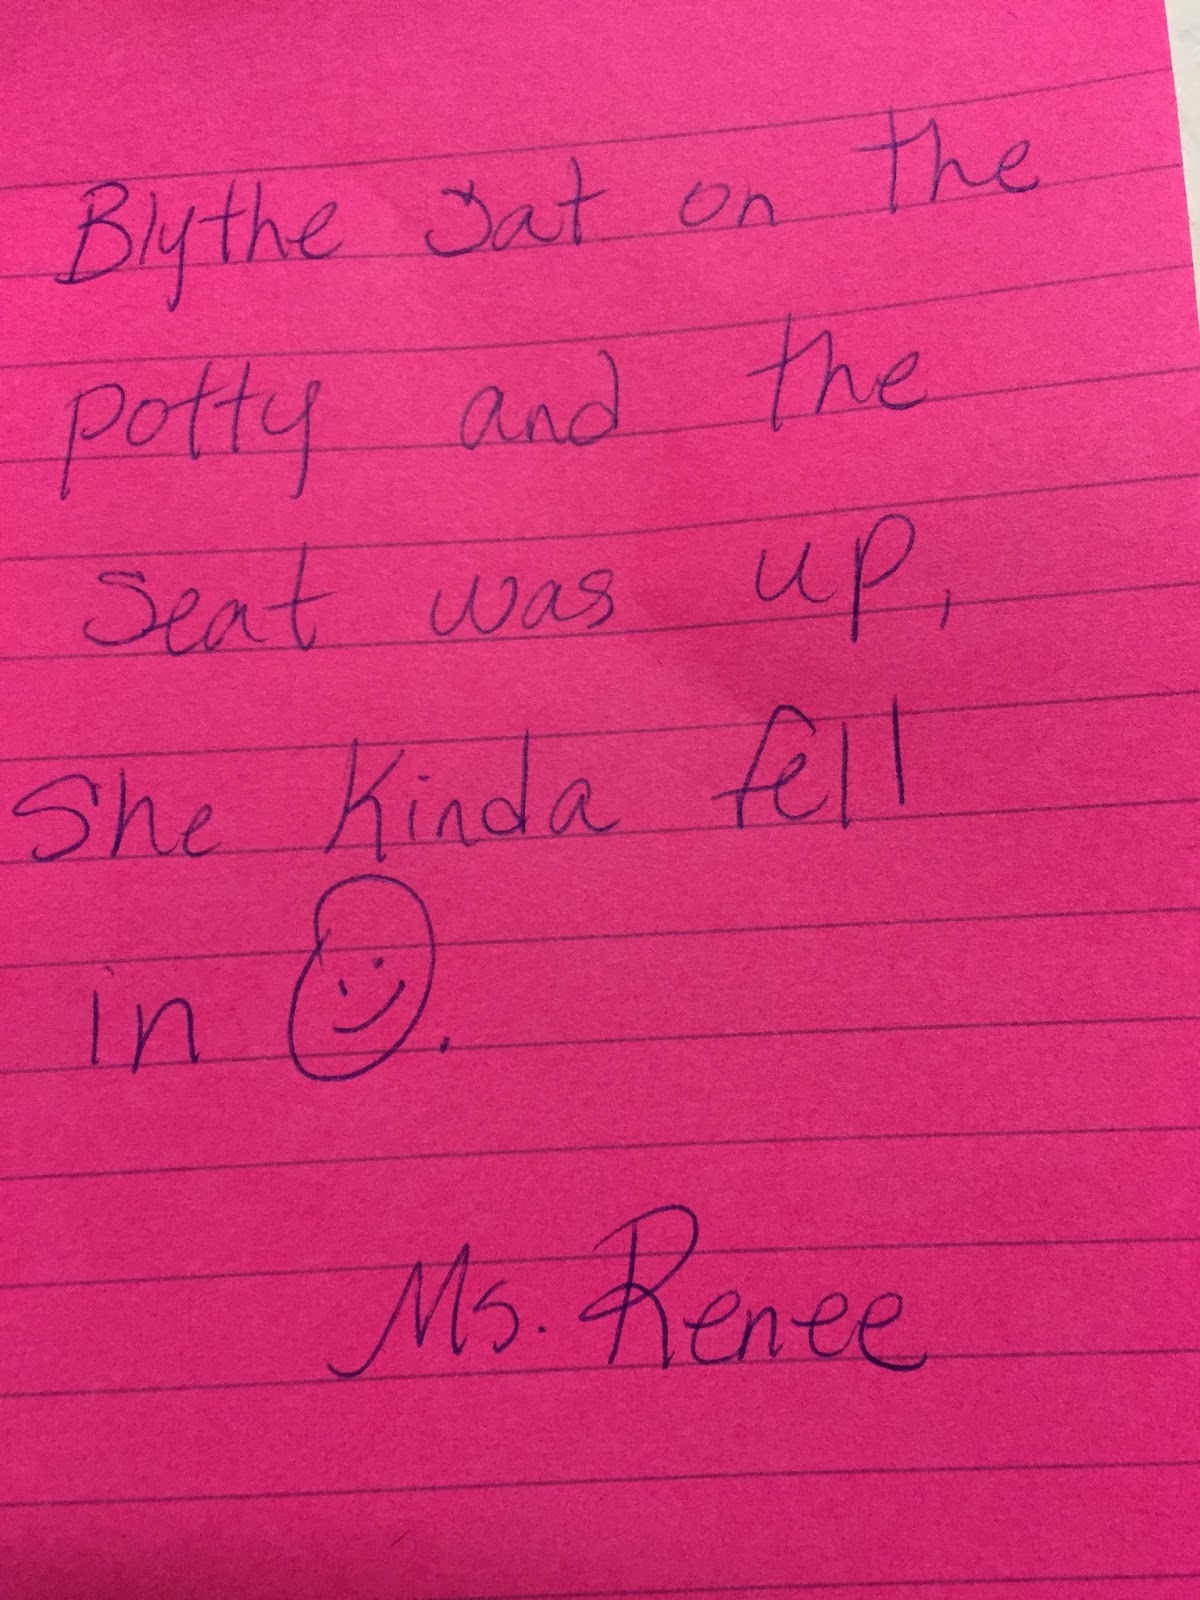 Blythe sat on the
potty and the
seat was up,
She Kinda fell
in ☺.
Ms. Renee